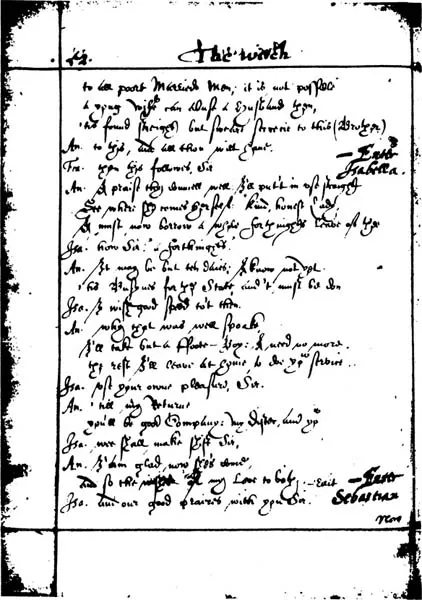 42. The witch
to all poore Married Men; it is not possible
a yong wife can abuse a husband then,
'tis found streight; but sweare secrecie to this (Brother)
An. to this, and all thou wilt have.
Fra. then this followes, Sir
— Enter Isabella.
An. I praise thy councell well, I'll put't in use streight
See where she comes herself: Kind, honest Lady
I must now borrow a whole fortnights leave of thee
Isa. how Sir: a fortnights.
An. It may be but ten daies; I know not yet
'tis busines for the State and 't must be don
Isa. I wish good speed to't then.
An. why that was well spoake,
I'll take but a foote-Boy: I need no more.
the rest I'll leave at home, to do you service.
Isa. use your owne pleasure, Sir.
An. till my Returne
you'll be good Company: my Sister, and you
Isa. wee shall make shift Sir,
An. I am glad, now she's come
and so the my Love to both, — Exit
— Enter Sebastian
Isa. and our good praiers with you Sir.